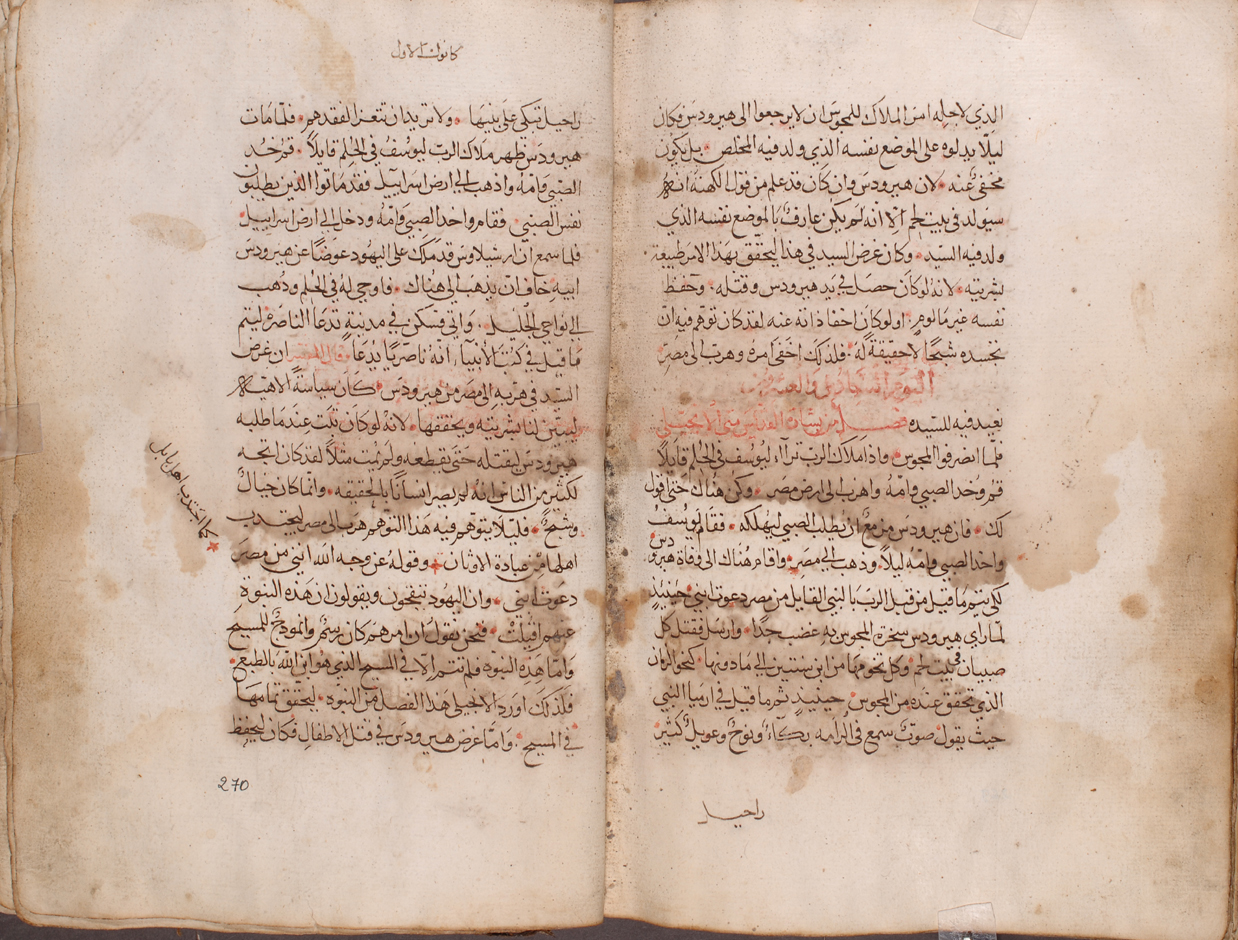 الذي لاجله امر الملاك للمجوس ان لا يرجعوا الى هيرودس فكان
ليلا يدلوه على الموضع نفسه الذي ولد فيه المخلص بل يكون
مخفى عنه لان هيرودس وان كان قد علم من قول الكهنة انه
سيولد في بيت لحم الا انه لم يكن عارف بالموضع نفسه الذي
ولد فيه السيد وكان غرض السيد في هذا ليحقق بهذا الامر طبيعة
بشريته لانه لو كان حصل في يد هيرودس وقتله وحفظ
نفسه غير مالوم او لو كان اخفا ذاته عنه لقد كان توهم فيه ان
تجسده شبحا لا حقيقة له فلذلك اخفى امره وهرب الى مصر
اليوم السادس والعشرون
نعيد فيه للسيده فصل من بشارة القديس متى الانجيلي
فلما انصرفوا المجوس واذا ملاك الرب ترآء ليوسف في الحلم قايلا
قم وخد الصبي وامه واهرب الى ارض مصر وكن هناك حتى اقول
لك فان هيرودس مزمع ان يطلب الصبي ليهلكه فقام يوسف
واخد الصبي وامه ليلا وذهب الى مصر واقام هناك الى وفاة هيرودس
لكي يتم ما قيل من قبل الرب بالنبي القايل من مصر دعوت ابني حينيذ
لما راي هيرودس سخرة المجوس به غضب جدا وارسل فقتل كل
صبيان في بيت لحم وكل تخومها من ابن سنتين الى ما دونها كنحو الزمان
الذي تحقق عنده من المجوس حينيذ تم ما قيل في ارميا النبي
حيث يقول صوت سمع في الرامه بكاء ونوح وعويل كثير
راحيل
كانون الاول
راحيل تبكي على بنيها ولا تريد ان تتعزا لفقدهم فلما مات
هيرودس ظهر ملاك الرب ليوسف في الحلم قايلا قم خد
الصبي وامه واذهب الى ارض اسراييل فقد ماتوا الذين يطلبون
نفس الصبي فقام واخد الصبي وامه ودخل الى ارض اسراييل
فلما سمع ان ارشيلاوس قد ملك على اليهود عوضا عن هيرودس
ابيه خاف ان يدهب الى هناك فاوحي له في الحلم وذهب
الى نواحي الجليل واتى فسكن في مدينة تدعا الناصرة ليتم
ما قيل في كتب الانبياء انه ناصريا يدعا قال المفسر ان غرض
السيد في هربه الى مصر من هيرودس كان سياسة الاهيه
ليبين لنا بشريته ويحققها لانه لو كان ثبت عند ما طلبه
هيرودس ليقتله حتى يقطعه ولم يمت مثلا لقد كان اتجه
لكثير من الناس انه لم يصر انسانا بالحقيقه وانما كان خيال
وشبح فليلا يتوهم فيه هذا التوهم هرب الى مصر ليجتدب
اهلها من عبادة الاوثان وقوله عن وجه الله انني من مصر
دعوت ابني وان اليهود يتقحون ويقولون ان هذه النبوة
عنهم اقيلت فنحن نقول ان امرهم كان رسم وانموذج للمسيح
واما هذه النبوه فلم تتم الا في المسيح الذي هو ابن الله بالطبع
فلذلك اورد الانجيلي هذا الفصل من النبوه ليحقق تمامها
في المسيح واما غرض هيرودس في قتل الاطفال فكان ليحفظ
كما اجتدب اهل بابل
270